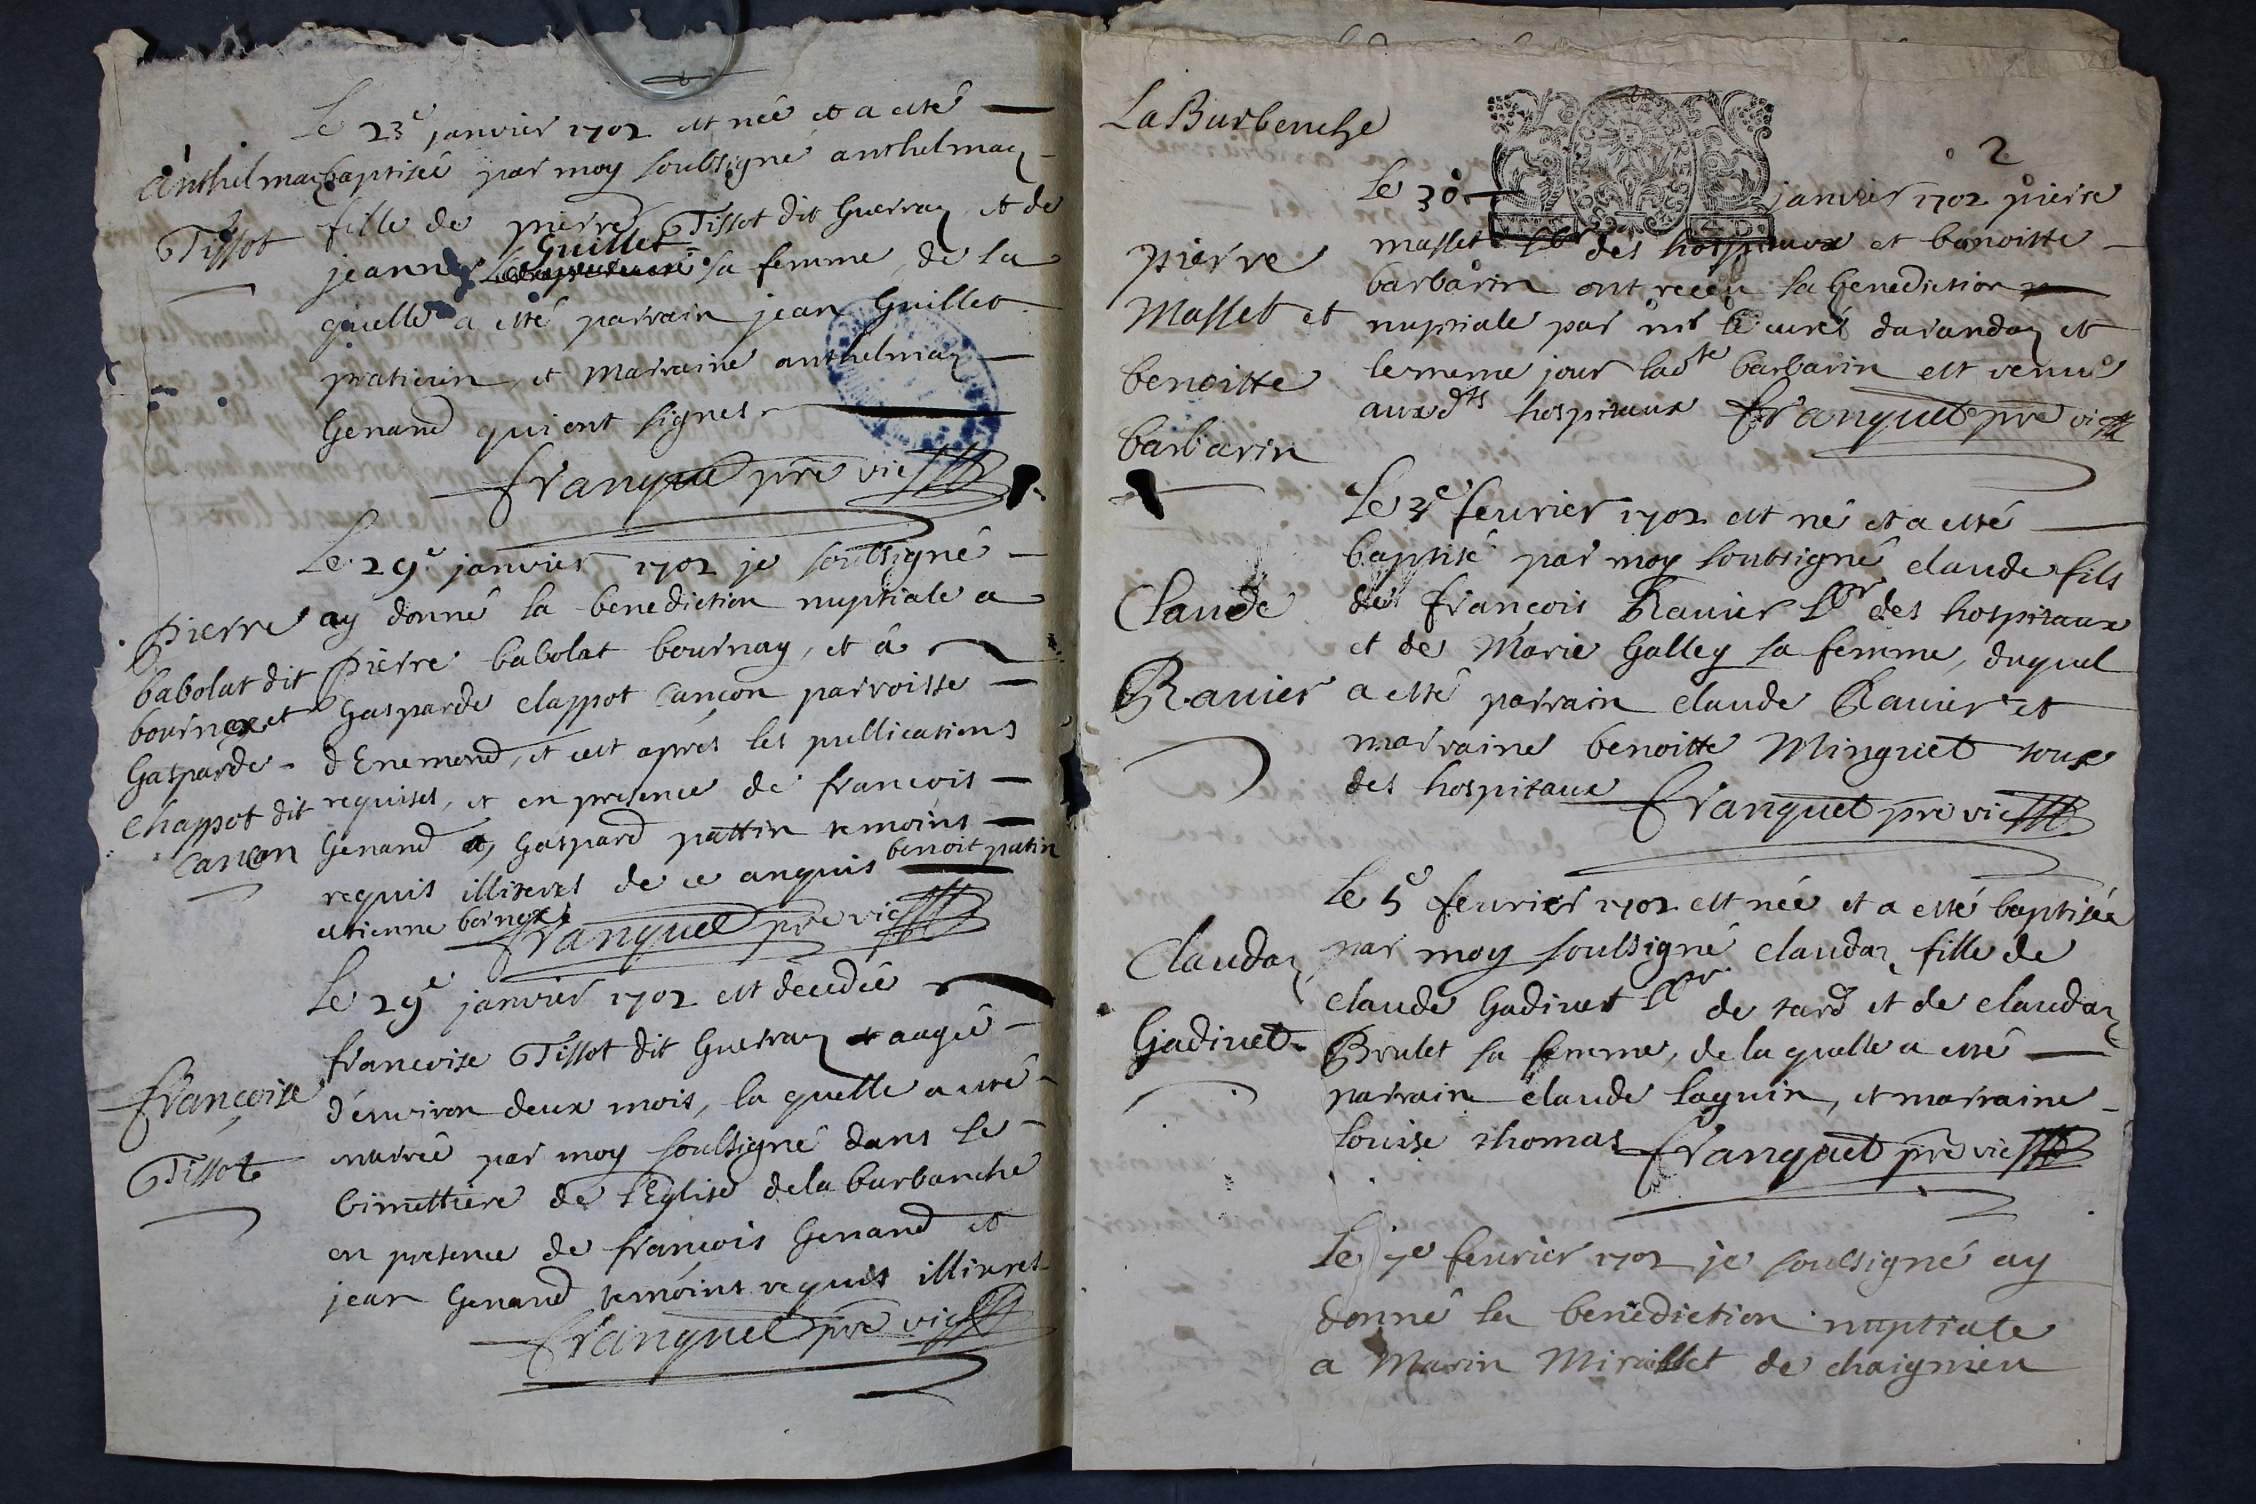 Le 23e janvier 1702 est née et a esté
anthelmaz baptisée par moy soubsigné anthelmaz
Tissot
fille de pierre Tissot dit Guerraz et de
jeanne Guillet sa femme, de la
quelle a esté parrain jean Guillet
praticien et marraine anthelmaz
Genand qui ont signes
franquet pre vic
Le 29e janvier 1702 je soubsigné
Pierre
babolat dit
bournex et
Gasparde
Chappot dit
Cancon
ay donné la benediction nuptiale a
Pierre babolat bournay, et à
Gasparde clappot Cançon parroisse
d'Enemond, et cest aprés les publications
requises, et en presence de francois
Genand et Gaspard pattin temoins
requis illiteres de ce anquis benoit patin
estienne bornex
franquet pre vic
Le 29e janvier 1702 est decedée
Françoise
Tissot
francoise Tissot dit Guerraz aagée
d'environ deux mois, la quelle a esté
enterrée par moy soubsigné dans le
Cimettiere de l'Eglise dela burbanche
en presence de françois Genand et
jean Genand temoins requis illiteres
franquet pre vic
La Burbenche
2
Le 30e janvier 1702 pierre
pierre
Masset et
benoitte
barbarin
masset Lbr des hospitaux et benoitte
barbarin ont receu la benediction
nuptiale par mr le curé darandaz et
le meme jour ladte barbarin est venue
auxdts hospitaux franquet pre vic
Le 3e feurier 1702 est né et a esté
baptisé par moy soubsigné claude fils
Claude
Ravier
de françois Ravier Lbr des hospitaux
et de Marie Galley sa femme, duquel
a esté parrain claude Ravier et
marraine benoitte Minguet tous
des hospitaux franquet pre vic
Le 5e feurier 1702 est née et a esté baptisée
Claudaz
Gadinet
par moy soubsigné claudaz fille de
claude Gadinet Lbr de tard et de claudaz
Brulet sa femme, de la quelle a esté
parrain claude saguin, et marraine
louise thomas franquet pre vic
Le 7e feurier 1702 je soubsigné ay
donné la benediction nuptiale
a Marin Miraillet de chaignieu